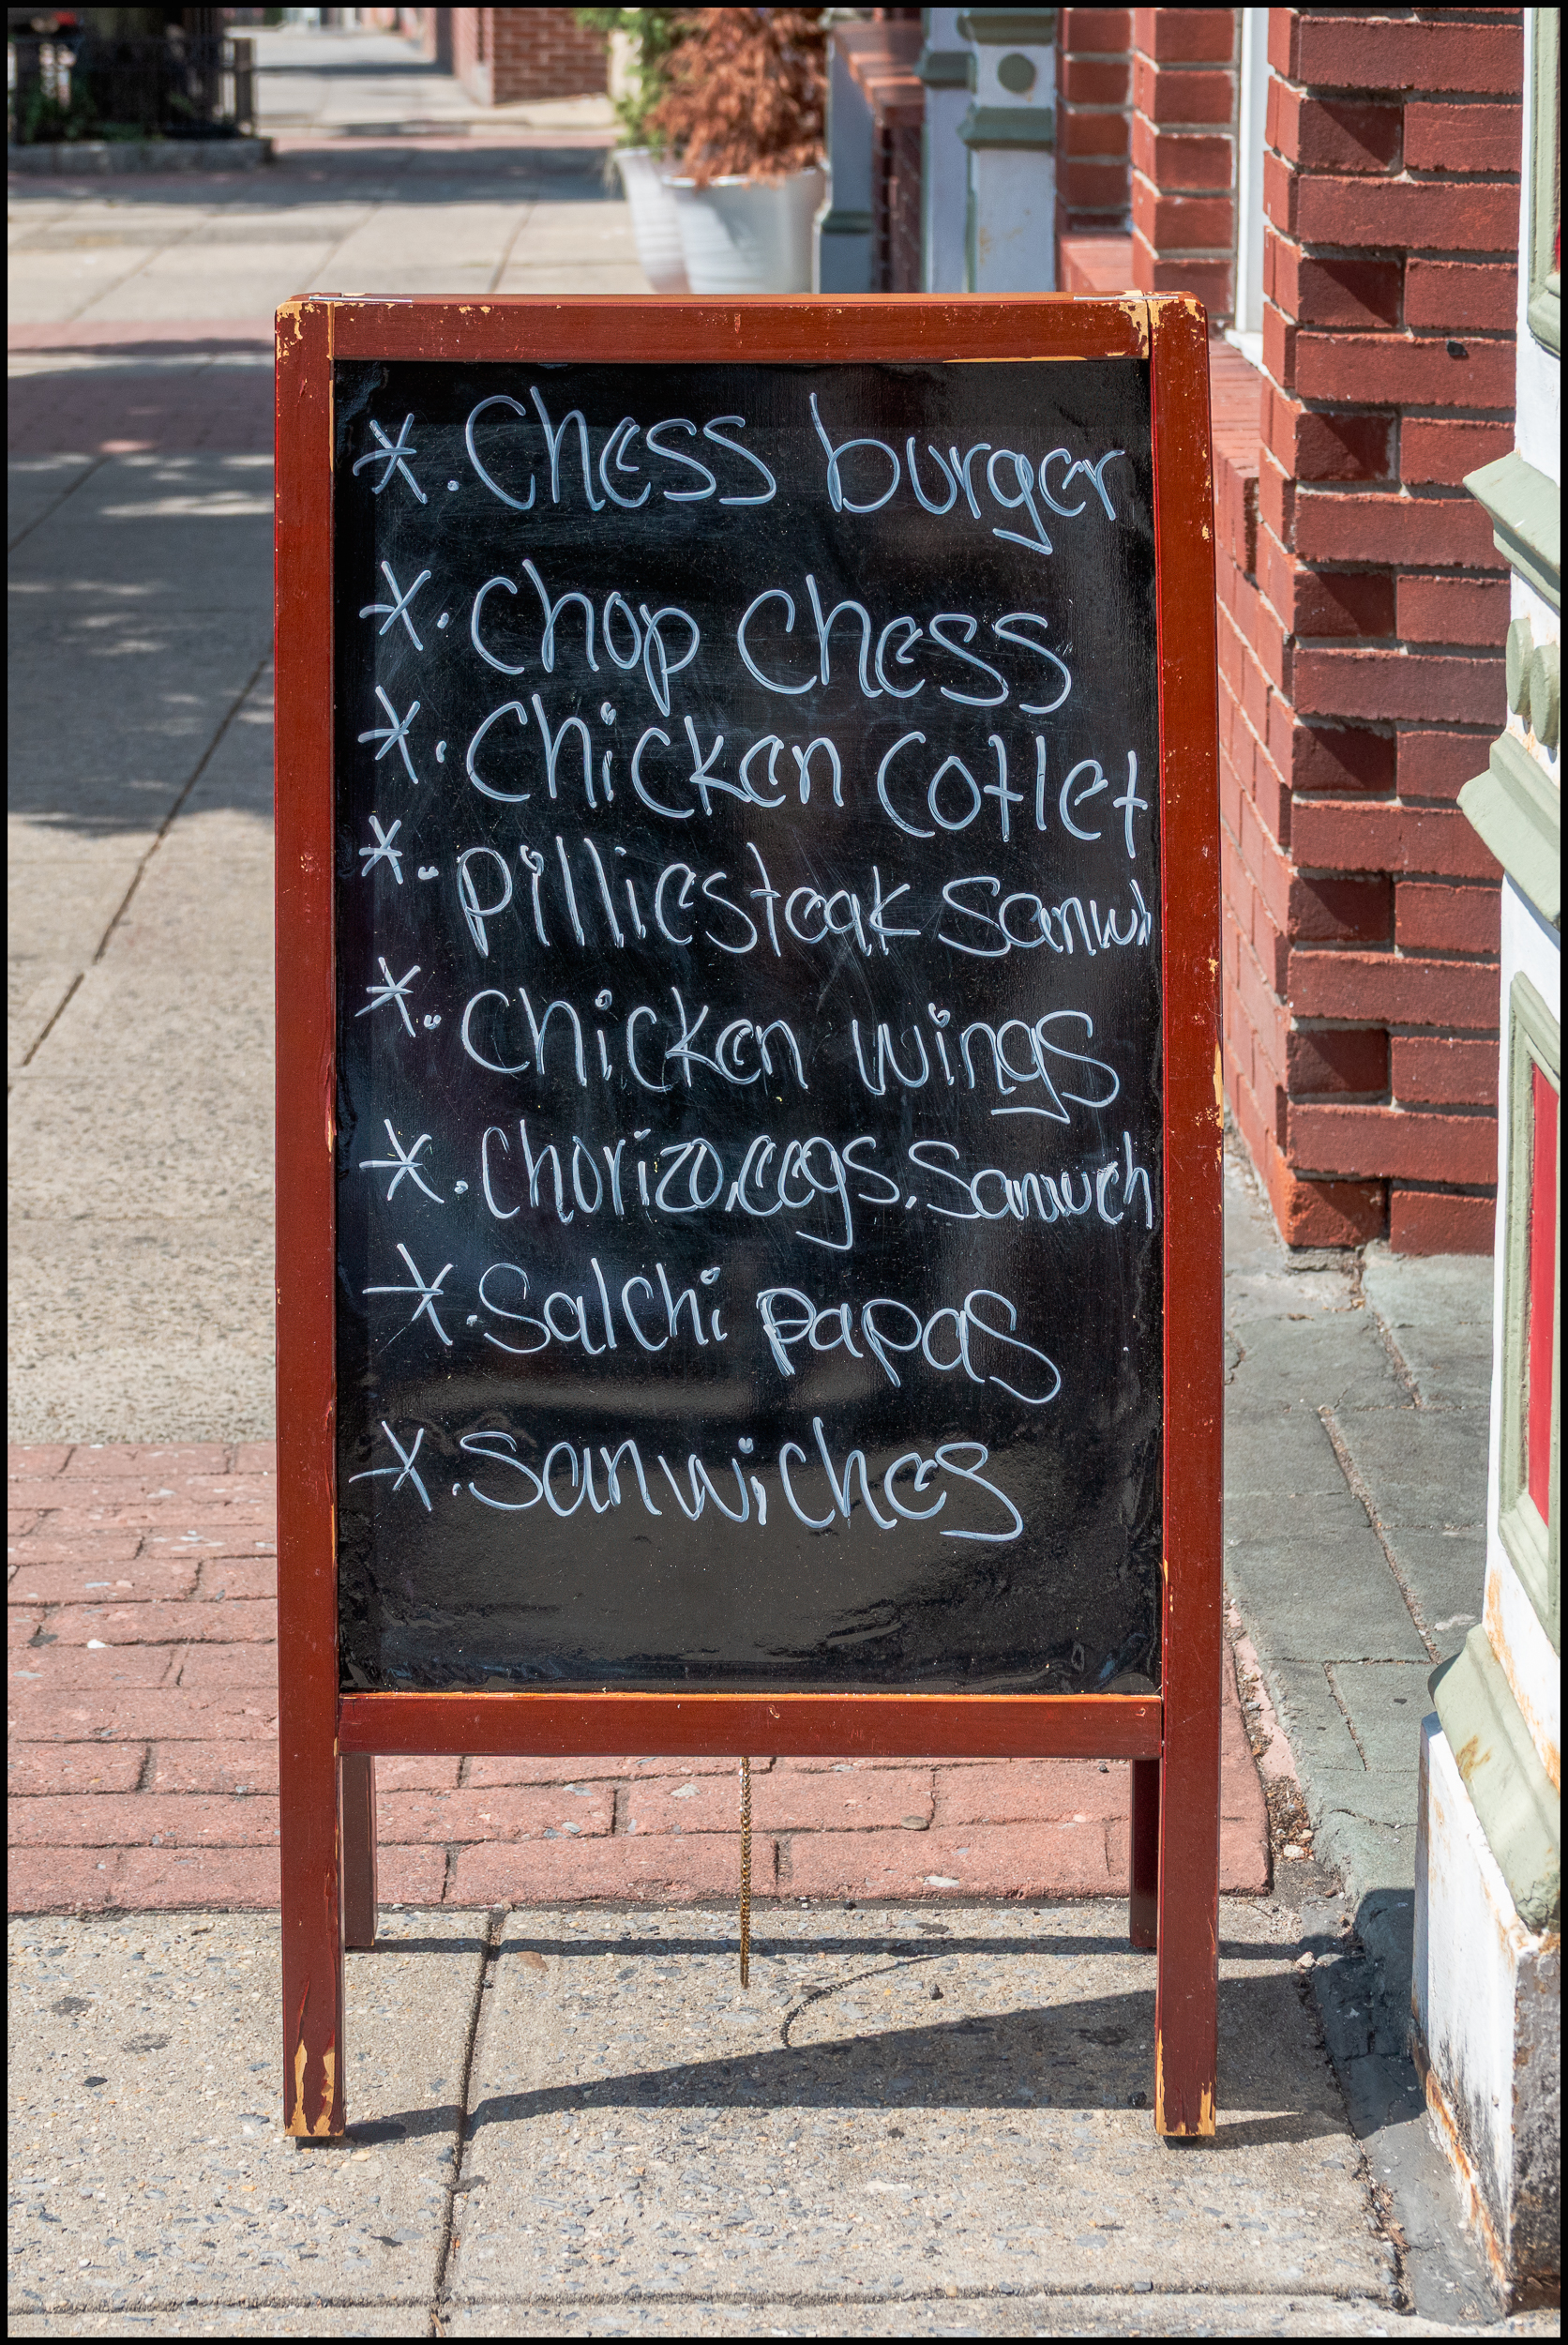 *. Chess burger
*. Chop Chess
*. Chicken Cotlet
*. pilliesteak Sanwi
*. Chicken wings
*. Chorizo,eegs,Sanwich
*. Salchi papas
*. Sanwiches